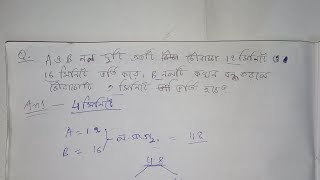 Q. A ও B নল দুটি একটি চৌবাচ্চা 12 মিনিট ও
16 মিনিটে ভর্তি করে, B নলটি কখন বন্ধ করলে
চৌবাচ্চাটি 9 মিনিটে ভর্তি হবে?
Ans - 4 মিনিট
A = 12
B = 16 ল.সা.গু. = 48
48